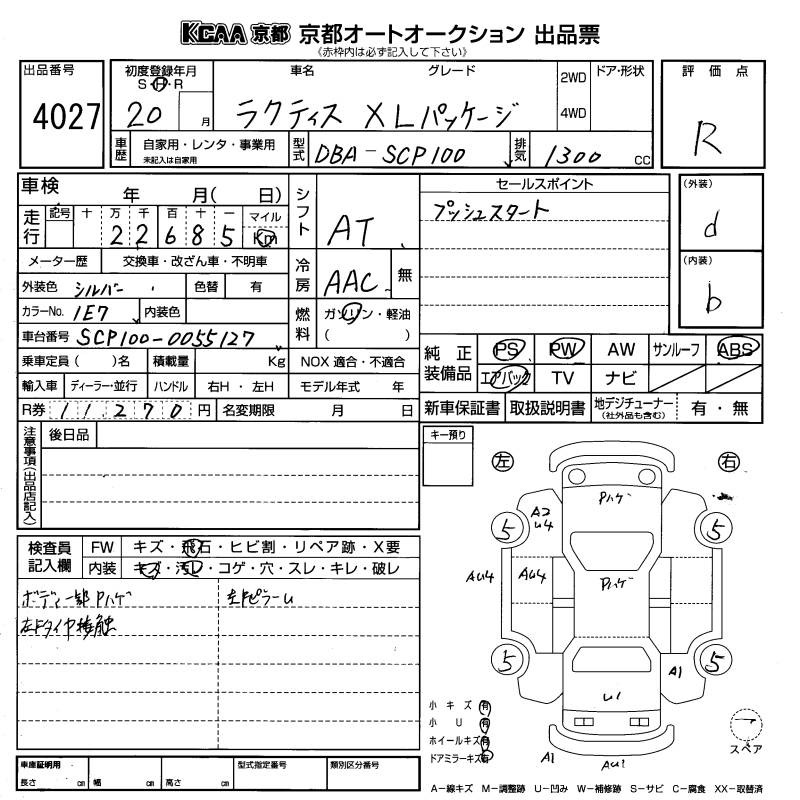 KCAA 京都 京都オートオークション 出品票
《赤枠内は必ず記入して下さい》
出品番号
4027
初度登録年月
S・H・R
20 月
車名 グレード
ラクティス XLパッケージ
2WD
4WD
ドア・形状
評価点
R
車歴
自家用・レンタ・事業用
未記入は自家用
型式
DBA-SCP100
排気
1300 cc
車検 年 月( 日)
走行
記号 十 万 千 百 十 一 マイル
2 2 6 8 5 Km
メーター歴 交換車・改ざん車・不明車
外装色 シルバー 色替 有
カラーNo. 1E7 内装色
車台番号 SCP100-0055127
乗車定員( )名 積載量 Kg
輸入車 ディーラー・並行 ハンドル 右H・左H
R券 11270円 名変期限 月 日
シフト
AT
冷房
AAC 無
燃料
ガソリン・軽油
( )
NOX 適合・不適合
モデル年式 年
セールスポイント
プッシュスタート
(外装)
d
(内装)
b
純正装備品
PS PW AW サンルーフ ABS
エアバック TV ナビ
新車保証書 取扱説明書 地デジチューナー(社外品も含む) 有・無
注意事項(出品店記入)
後日品
キー預り
検査員記入欄
FW キズ・飛石・ヒビ割・リペア跡・X要
内装 キズ・汚レ・コゲ・穴・スレ・キレ・破レ
ボディー一部Pハゲ
左Fタイヤ接触
左FピラーU
左 右
Pハゲ
A2
U4
5 5
AU4 AU4 Pハゲ
5 5
A1
U1
A1 AU1
小キズ 有
小U 有
ホイールキズ 有
ドアミラーキズ 有
スペア
車庫証明用
長さ cm 幅 cm 高さ cm
型式指定番号
類別区分番号
A-線キズ M-調整跡 U-凹み W-補修跡 S-サビ C-腐食 XX-取替済